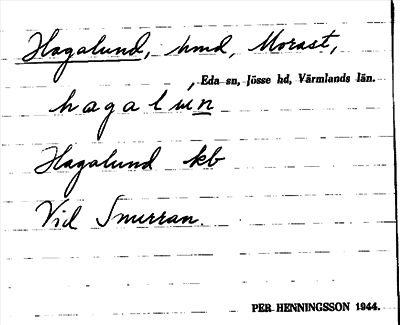 Hagalund, hmd, Morast,
Eda sn, Jösse hd, Värmlands län.
hagalún
Hagalund kb
Vid Smurran.
PER HENNINGSSON 1944.